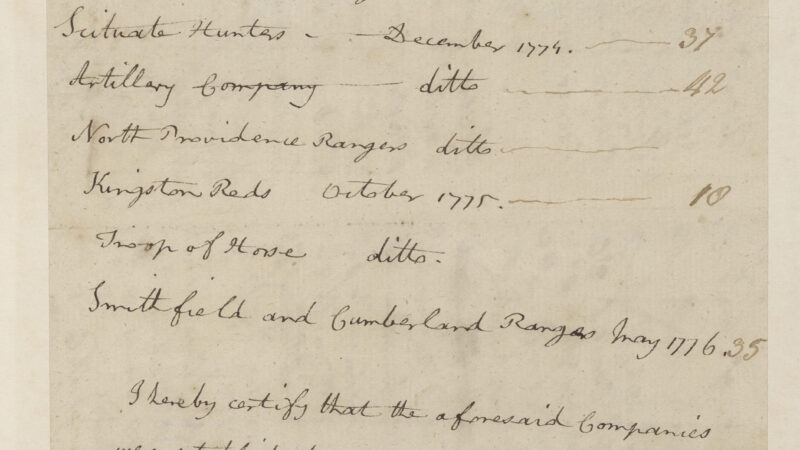 Scituate Hunters - - December 1774. 37
Artillery Company ditto 42
North Providence Rangers ditto
Kingston Reds October 1775. 10
Troop of Horse ditto.
Smithfield and Cumberland Rangers May 1776. 35
I hereby certify that the aforesaid Companies